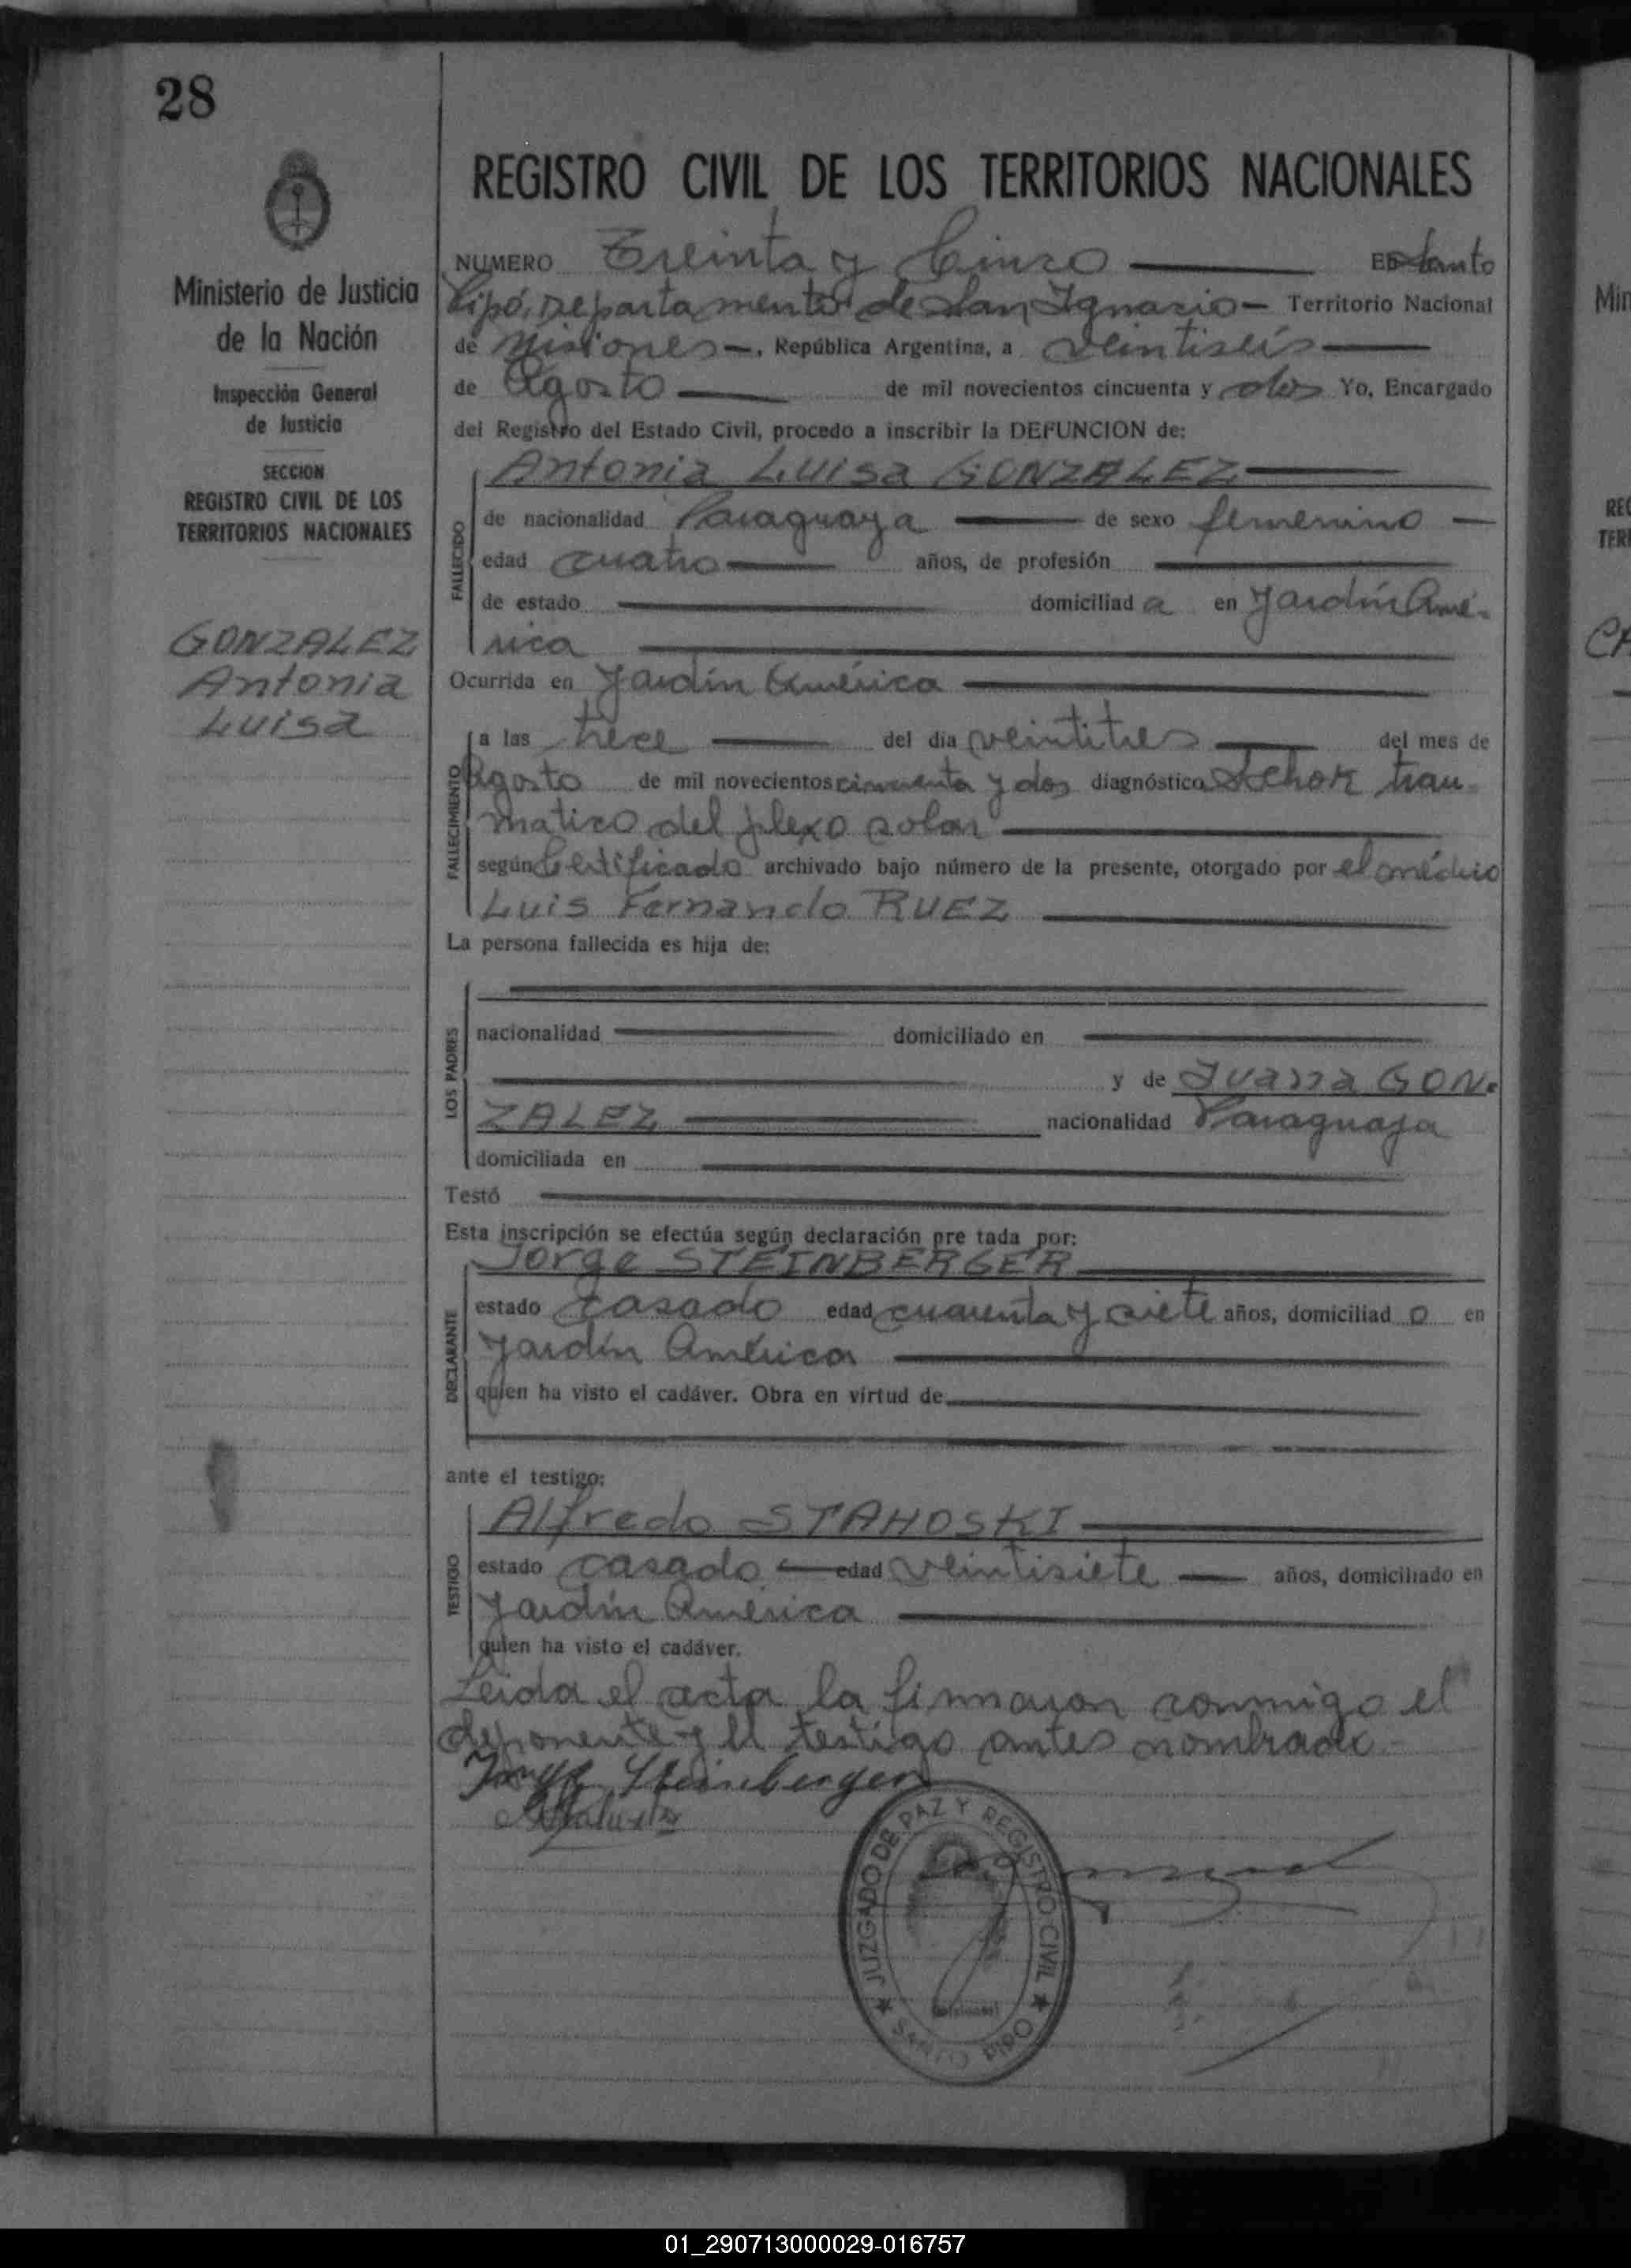 28
Ministerio de Justicia
de la Nación
Inspección General
de Justicia
SECCION
REGISTRO CIVIL DE LOS
TERRITORIOS NACIONALES
GONZALEZ
Antonia
Luisa
REGISTRO CIVIL DE LOS TERRITORIOS NACIONALES
NUMERO Treinta y Cinco EN Santo
Pipó, Departamento de San Ignacio - Territorio Nacional
de Misiones -, República Argentina, a veintiseis
de Agosto de mil novecientos cincuenta y dos Yo, Encargado
del Registro del Estado Civil, procedo a inscribir la DEFUNCION de:
Antonia Luisa GONZALEZ
FALLECIDO
de nacionalidad Paraguaya de sexo femenino
edad cuatro años, de profesión
de estado domiciliad a en Jardín Amé-
rica
Ocurrida en Jardín América
FALLECIMIENTO
a las trece del día veintitres del mes de
Agosto de mil novecientos cincuenta y dos diagnóstico Schok trau-
matico del plexo solar
según Certificado archivado bajo número de la presente, otorgado por el médico
Luis Fernando RUEZ
La persona fallecida es hija de:
LOS PADRES
nacionalidad domiciliado en
y de Juana GON-
ZALEZ nacionalidad Paraguaya
domiciliada en
Testó
Esta inscripción se efectúa según declaración pre tada por:
Jorge STEINBERGER
DECLARANTE
estado casado edad cuarenta y siete años, domiciliad o en
Jardín América
quien ha visto el cadáver. Obra en virtud de
ante el testigo:
Alfredo STAHOSKI
TESTIGO
estado casado edad veintisiete años, domiciliado en
Jardín América
quien ha visto el cadáver.
Leida el acta la firmaron conmigo el
deponente y el testigo antes nombrado.-
Jorge Steinberger
JUZGADO DE PAZ Y REGISTRO CIVIL
Min
REG
TERR
CA
01_290713000029-016757